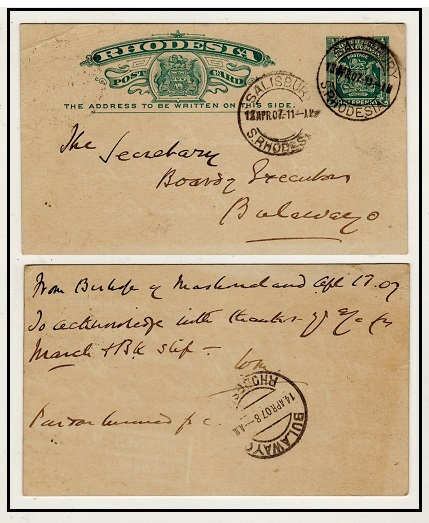 RHODESIA
POST CARD
THE ADDRESS TO BE WRITTEN ON THIS SIDE.
SALISBURY
12 APR.07.11-AM
S.RHODESIA
SALISBUR
12 APR.07-11-AM
S.RHODESI
The
Secretary
Board of Executors
Bulawayo
From Bishop of Mashonaland Apl 12.07
To acknowledge with thanks
March + Bk slip -
p.c.
RHOD
14 APR.07 8-AM
BULAWAYO